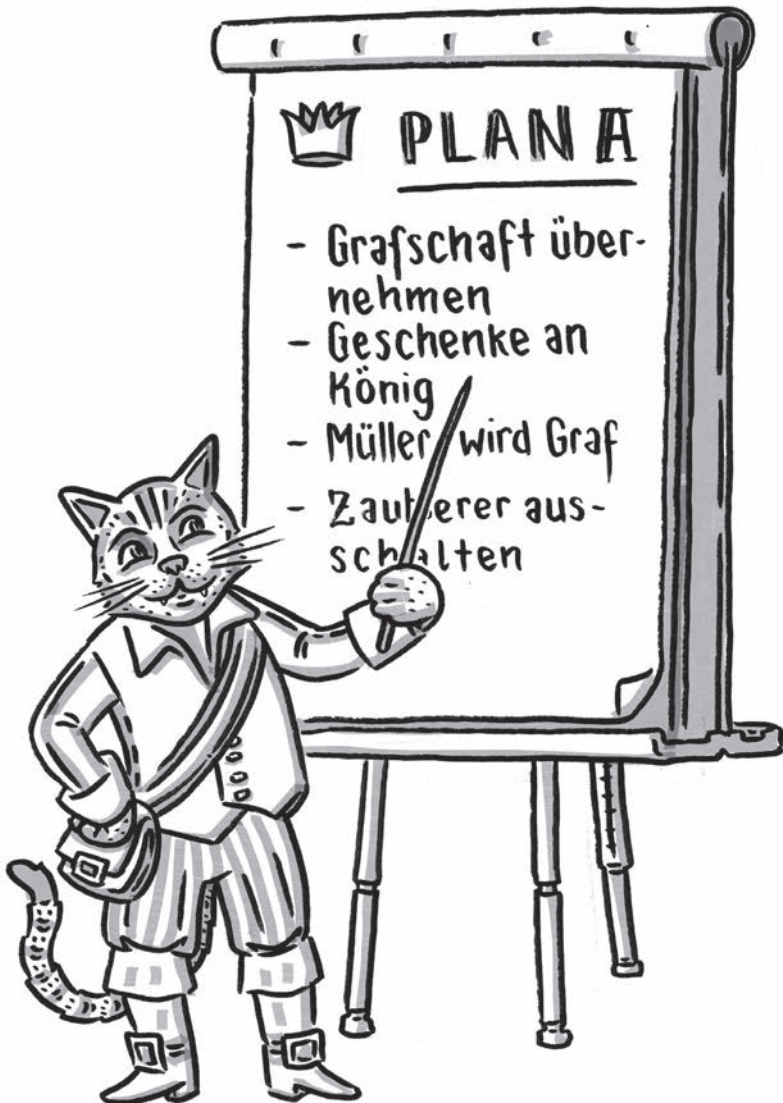 PLAN A
- Grafschaft über-
nehmen
- Geschenke an
König
- Müller wird Graf
- Zauberer aus-
schalten